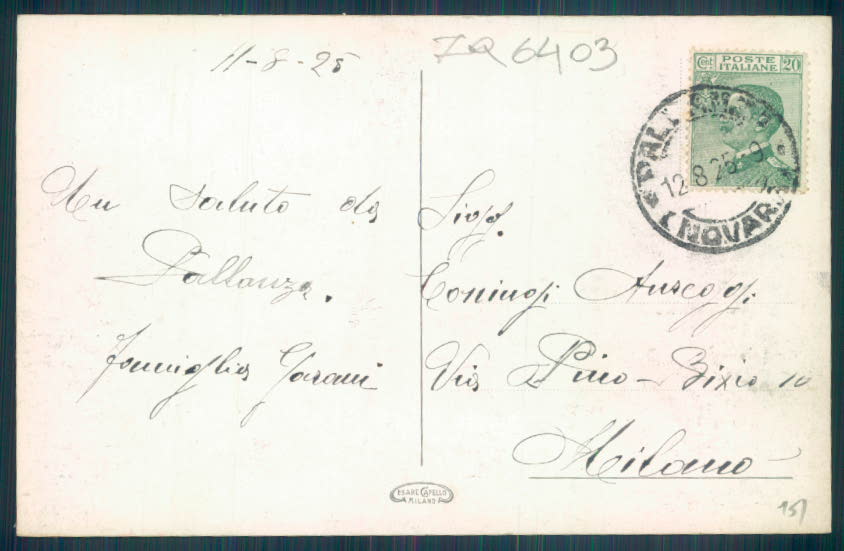 11-8-25
IQ6403
POSTE
Cent. ITALIANE 20
PALLANZA
12.8.25
(NOVARA)
Un saluto da
Pallanza.
Famiglia
Sigg.
Coniugi Aureggi
Via Nino Bixio 10
Milano
CESARE CAPELLO
MILANO
151